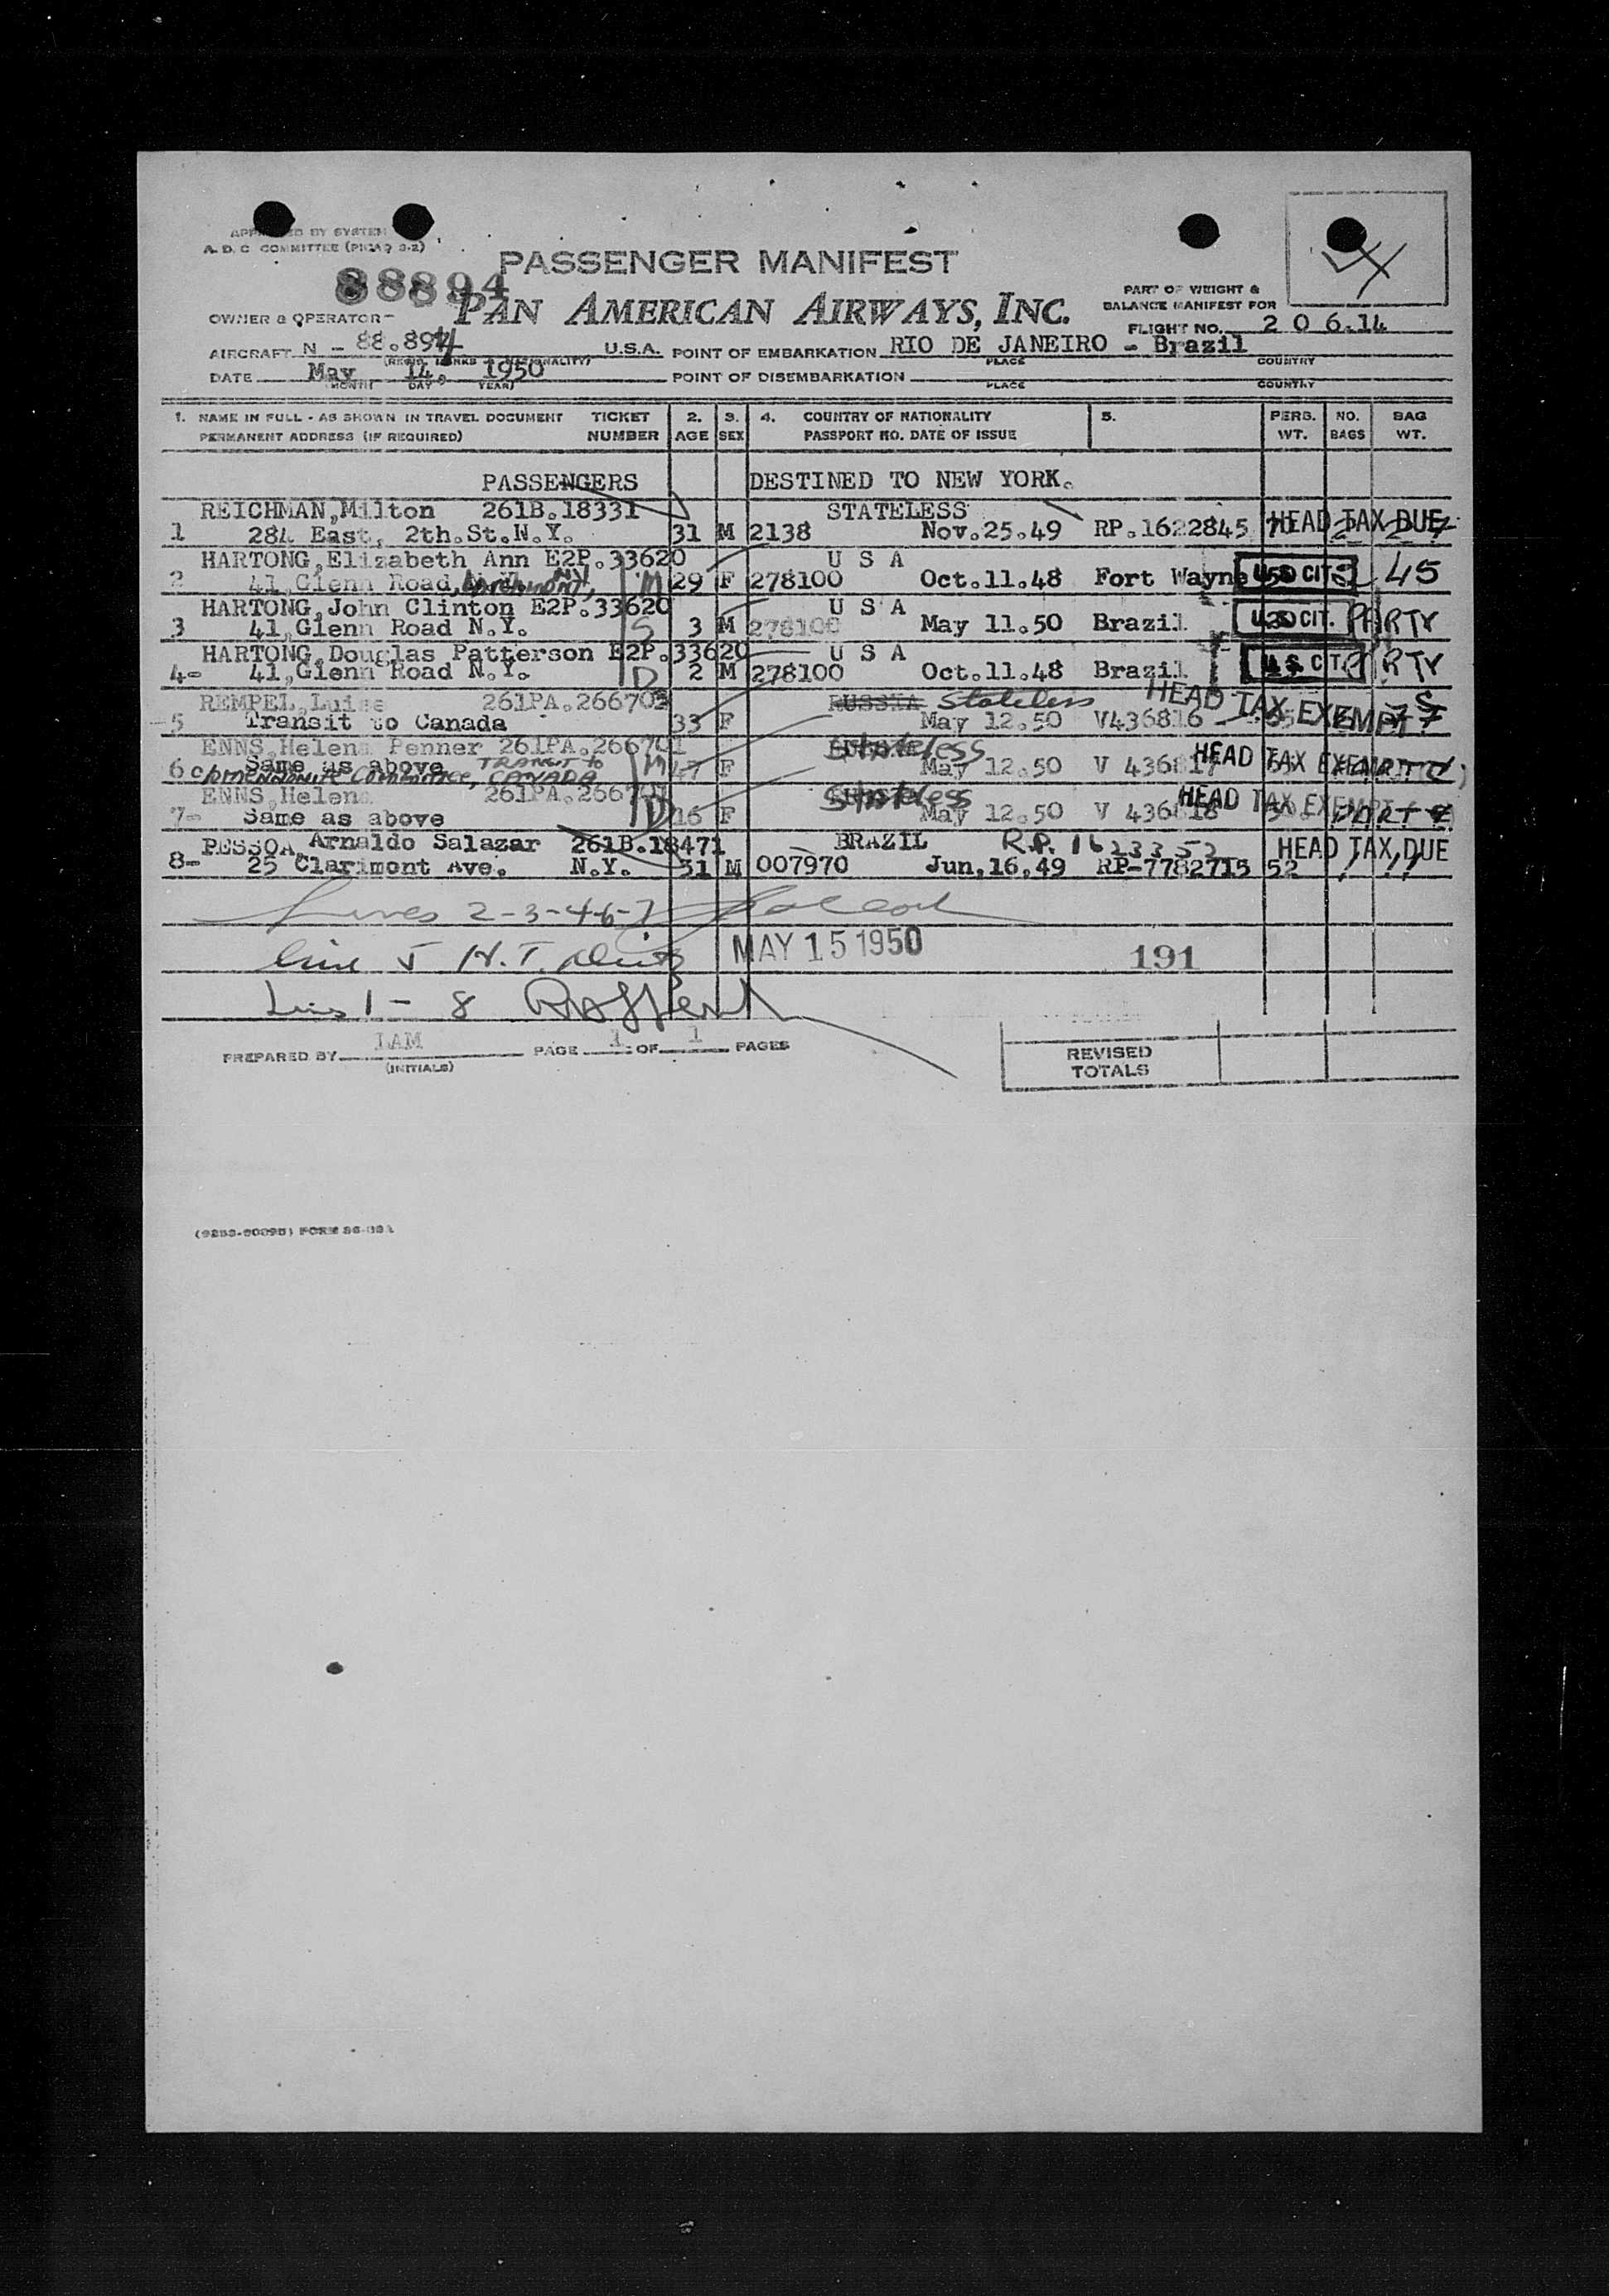 A.D.C COMMITTEE (PICAO 3.2)
88894
PASSENGER MANIFEST
PAN AMERICAN AIRWAYS, INC.
PART OF WEIGHT &
BALANCE MANIFEST FOR
OWNER & OPERATOR-
FLIGHT NO. 2 0 6.14
AIRCRAFT N - 88.894 U.S.A. POINT OF EMBARKATION RIO DE JANEIRO - Brazil
PLACE COUNTRY
DATE May 14, 1950 POINT OF DISEMBARKATION
MONTH DAY YEAR) PLACE COUNTRY
1. NAME IN FULL - AS SHOWN IN TRAVEL DOCUMENT TICKET 2. 3. 4. COUNTRY OF NATIONALITY 5. PERS. NO. BAG
PERMANENT ADDRESS (IF REQUIRED) NUMBER AGE SEX PASSPORT NO. DATE OF ISSUE WT. BAGS WT.
PASSENGERS DESTINED TO NEW YORK.
REICHMAN,Milton 261B.18331 STATELESS
1 284 East, 2th.St.N.Y. 31 M 2138 Nov.25.49 RP.1622845 HEAD TAX DUE
HARTONG,Elizabeth Ann E2P.33620 U S A
2 41,Glenn Road, NY M 29 F 278100 Oct.11.48 Fort Wayne U.S. CIT. 45
HARTONG,John Clinton E2P.33620 U S A
3 41,Glenn Road N.Y. S 3 M 278100 May 11.50 Brazil U.S. CIT. PARTY
HARTONG,Douglas Patterson E2P.33620 U S A
4- 41,Glenn Road N.Y. D 2 M 278100 Oct.11.48 Brazil U.S. CIT. PARTY
REMPEL,Luise 261PA.266703 RUSSIA Stateless HEAD TAX EXEMPT
5 Transit to Canada 33 F May 12.50 V436816
ENNS,Helena Penner 261PA.266701 Stateless HEAD TAX EXEMPT
6 Same as above TRANSIT to M 47 F May 12.50 V 436817
c/o MENNONITE COMMITTEE, CANADA
ENNS,Helena 261PA.266701 Stateless HEAD TAX EXEMPT
7- Same as above D 16 F May 12.50 V 436818
PESSOA,Arnaldo Salazar 261B.18471 BRAZIL R.P. 1623352 HEAD TAX DUE
8- 25 Clarimont Ave. N.Y. 31 M 007970 Jun,16,49 RP-7782715 52
Lines 2-3-4-6-7
MAY 15 1950 191
Line 5 H.T.
1 - 8
PREPARED BY IAM PAGE 1 OF 1 PAGES
(INITIALS)
REVISED
TOTALS